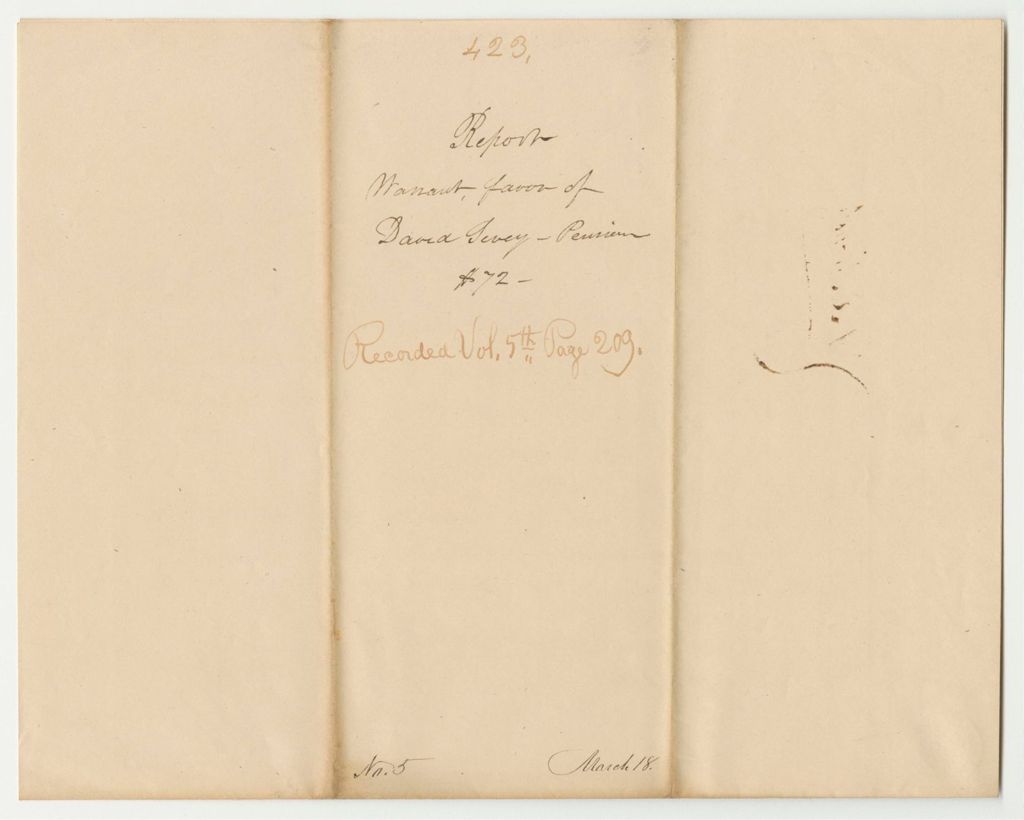 423.
Report
Warrant, favor of
David Sevey - Pension
$72 -
Recorded Vol. 5th Page 209.
No. 5
March 18.